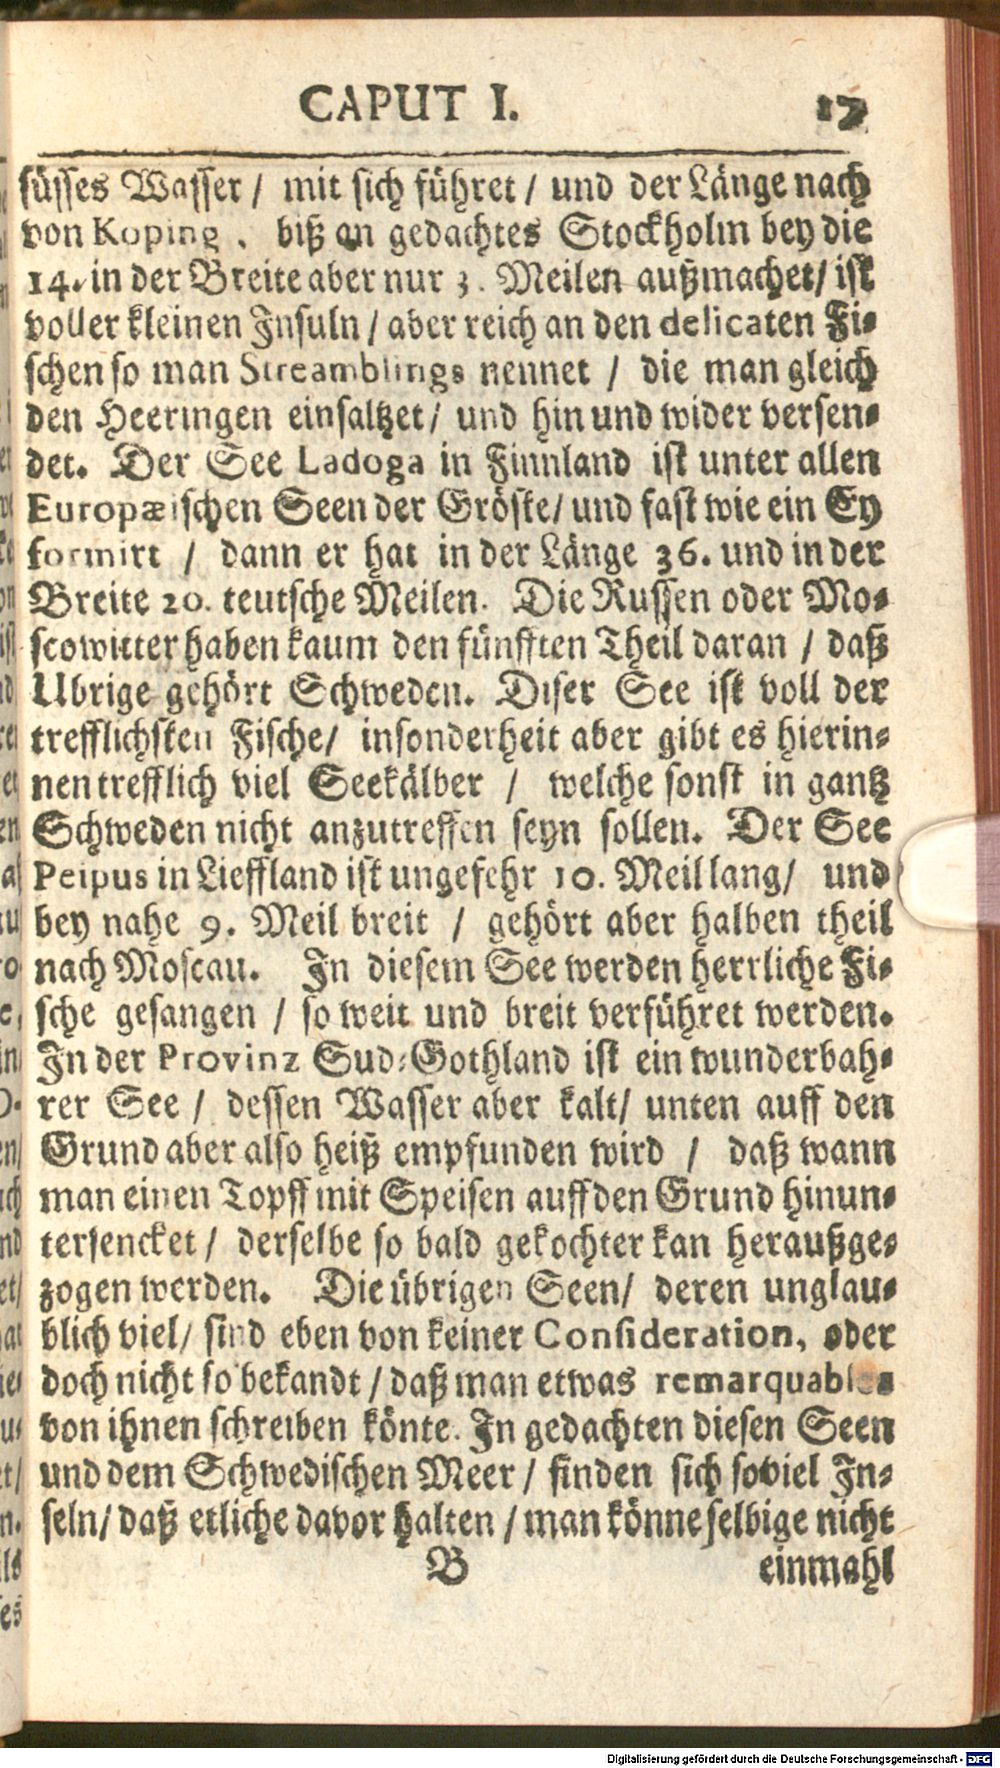 CAPUT I. 17
süsses Wasser / mit sich führet / und der Länge nach
von Koping , biß an gedachtes Stockholm bey die
14. in der Breite aber nur 3. Meilen außmachet / ist
voller kleinen Insuln / aber reich an den delicaten Fi-
schen so man Streamblings nennet / die man gleich
den Heeringen einsaltzet / und hin und wider versen-
det. Der See Ladoga in Finnland ist unter allen
Europæischen Seen der Gröste / und fast wie ein Ey
formirt / dann er hat in der Länge 36. und in der
Breite 20. teutsche Meilen. Die Russen oder Mo-
scowitter haben kaum den fünfften Theil daran / daß
Ubrige gehört Schweden. Diser See ist voll der
trefflichsten Fische / insonderheit aber gibt es hierin-
nen trefflich viel Seekälber / welche sonst in gantz
Schweden nicht anzutreffen seyn sollen. Der See
Peipus in Lieffland ist ungefehr 10. Meil lang / und
bey nahe 9. Meil breit / gehört aber halben theil
nach Moscau. In diesem See werden herrliche Fi-
sche gefangen / so weit und breit verführet werden.
In der Provinz Sud-Gothland ist ein wunderbah-
rer See / dessen Wasser aber kalt / unten auff den
Grund aber also heiß empfunden wird / daß wann
man einen Topff mit Speisen auff den Grund hinun-
tersencket / derselbe so bald gekochter kan heraußge-
zogen werden. Die übrigen Seen / deren unglau-
blich viel / sind eben von keiner Consideration, oder
doch nicht so bekandt / daß man etwas remarquables
von ihnen schreiben könte. In gedachten diesen Seen
und dem Schwedischen Meer / finden sich soviel In-
seln / daß etliche davor halten / man könne selbige nicht
B einmahl
Digitalisierung gefördert durch die Deutsche Forschungsgemeinschaft - DFG